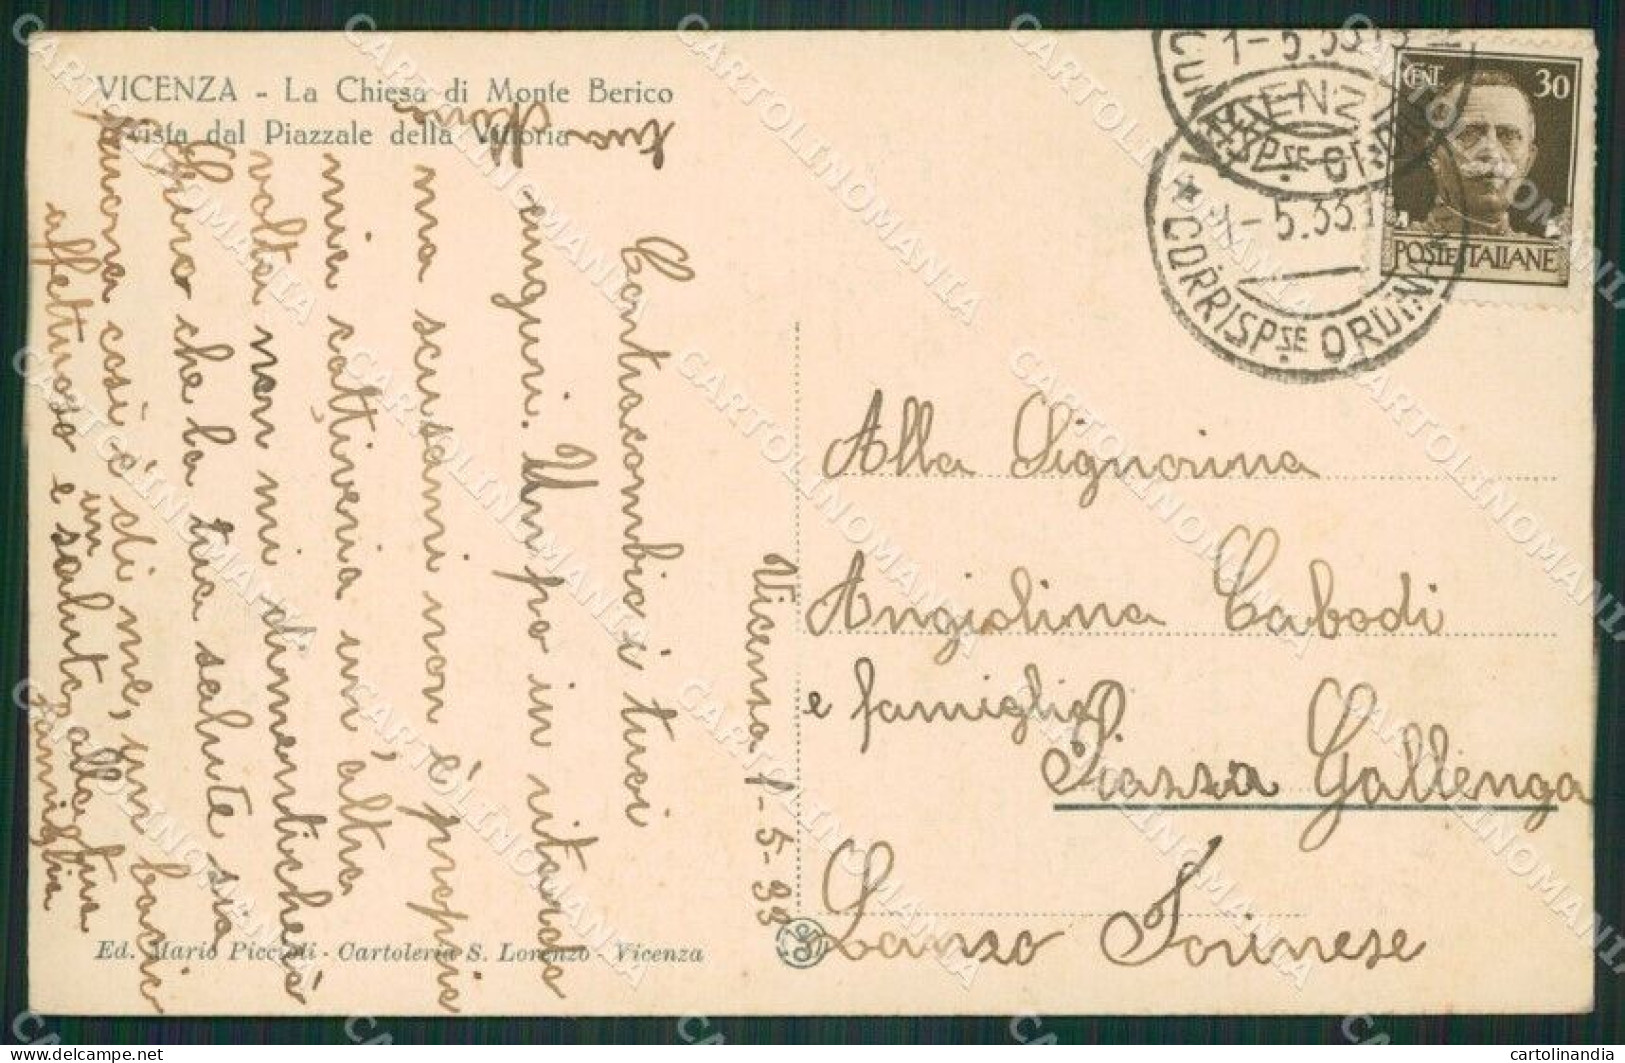 VICENZA - La Chiesa di Monte Berico
vista dal Piazzale della Vittoria
CENT. 30
POSTE ITALIANE
1-5.33
CORRISP.ZE ORDINA
1-5.33.1
Vicenza 1-5-33
Contracambio i tuoi
auguri. Un po in ritardo
ma scusami non è proprio
mia cattiveria un'altra
volta non mi dimenticherò
che la tua salute sia
buona così è di me, un bacio
affettuoso e un saluto alla tua
famiglia
tua
Alla Signorina
Angiolina Cabodi
e famiglia
Piazza Gallenga
Lanzo Torinese
Ed. Mario Piccioli - Cartoleria S. Lorenzo - Vicenza
CARTOLINOMANIA
cartolinandia